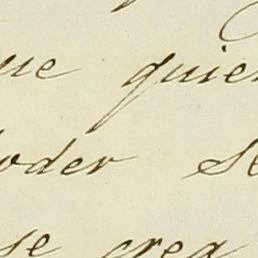 que quien
poder se
se crea